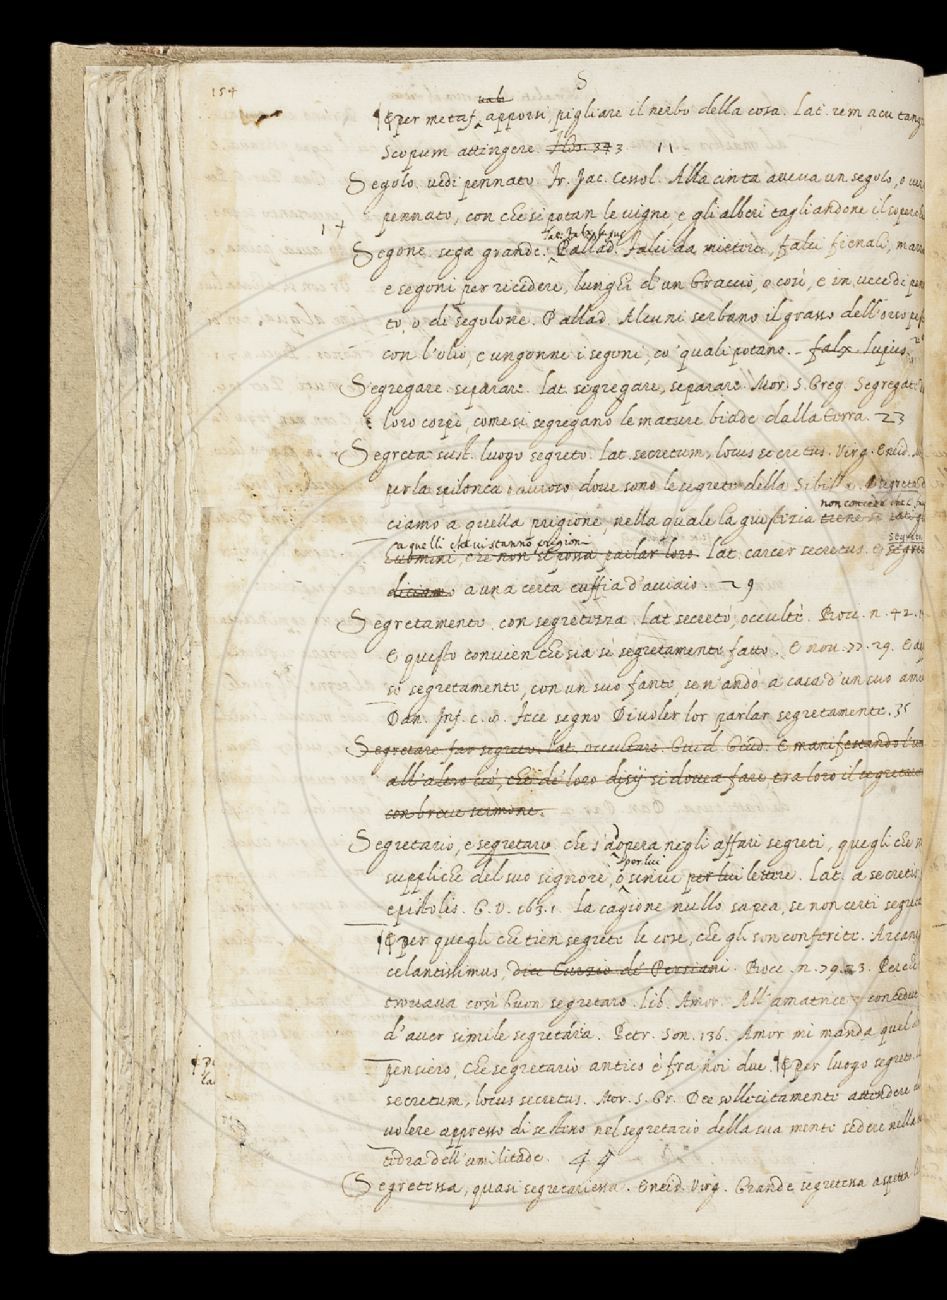 154
S
¶ E per metaf. apporsi, pigliare il nerbo della cosa. Lat. rem acu tang
scopum attingere. 11
Segolo. vedi pennato Fr. Jac. Cessol. Alla cinta aveva un segolo, o
pennato, con che si potan le vigne e gli alberi tagliandone il
17
Segone. sega grande. Pallad. falci da mietere, falci fienali,
e segoni per ricidere, lunghi d'un braccio, o così, e in vece di
to, o di segolone. Pallad. Alcuni serbano il grasso dell'orso
con l'olio, e ungonne i segoni, co' quali potano. falx lupus.
Segregare. separare. Lat. segregare, separare. Mor. S. Greg.
loro corpi, come si segregano le mature biade dalla terra. 23
Segreta sust. luogo segreto. Lat. secretum, locus secretus. Virg. Eneid.
per la spilonca dove sono le segrete della Sibill
non concede che
ciamo a quella prigione, nella quale la giustizia
a quelli che vi stanno prigioni
huomini, che non si possa parlar loro. Lat. carcer secretus. e segre
diciamo a una certa cuffia d'acciaio. 29
Segretamente, con segretezza. Lat. secretò, occultè. Bocc. n. 42.
E questo convien che sia sì segretamente fatto. E nov. 77. 29.
so segretamente, con un suo fante, se n'andò a casa d'un suo am
Dan. Inf. c. 8. Fece segno Di voler lor parlar segretamente. 35
Segretare far segreto. Lat. occultare. Ovid. E manifestando l'un
all'altro ciò, che de' loro disij si doveva fare, tra loro il segretar
con breve sermone.
Segretario, e segretaro che s'adopera negli affari segreti, quegli che
per lui
suppliche del suo signore, o scrive per lui lettere. Lat. a secretis,
epistolis. G. V. 163. 1. La cagione nullo sapea, se non certi segret
¶ E per quegli che tien segrete le cose, che gli son conferite. Arcan
celantissimus, dice Curzio de' Persiani. Bocc. n. 79. 23.
trovava così buon segretaro. Lib. Amor. All'amatrice è conced
d'aver simile segretaria. Petr. Son. 136. Amor mi manda quel
pensiero, Che segretario antico è fra noi due. ¶ E per luogo segreto.
secretum, locus secretus. Mor. S. Gr. Dee sollecitamente attendere
volere appresso di se stesso nel segretario della sua mente sedere nella
tedra dell'umilitade. 44
Segretessa, quasi segretariessa. Eneid. Virg. Grande segretessa aspetta